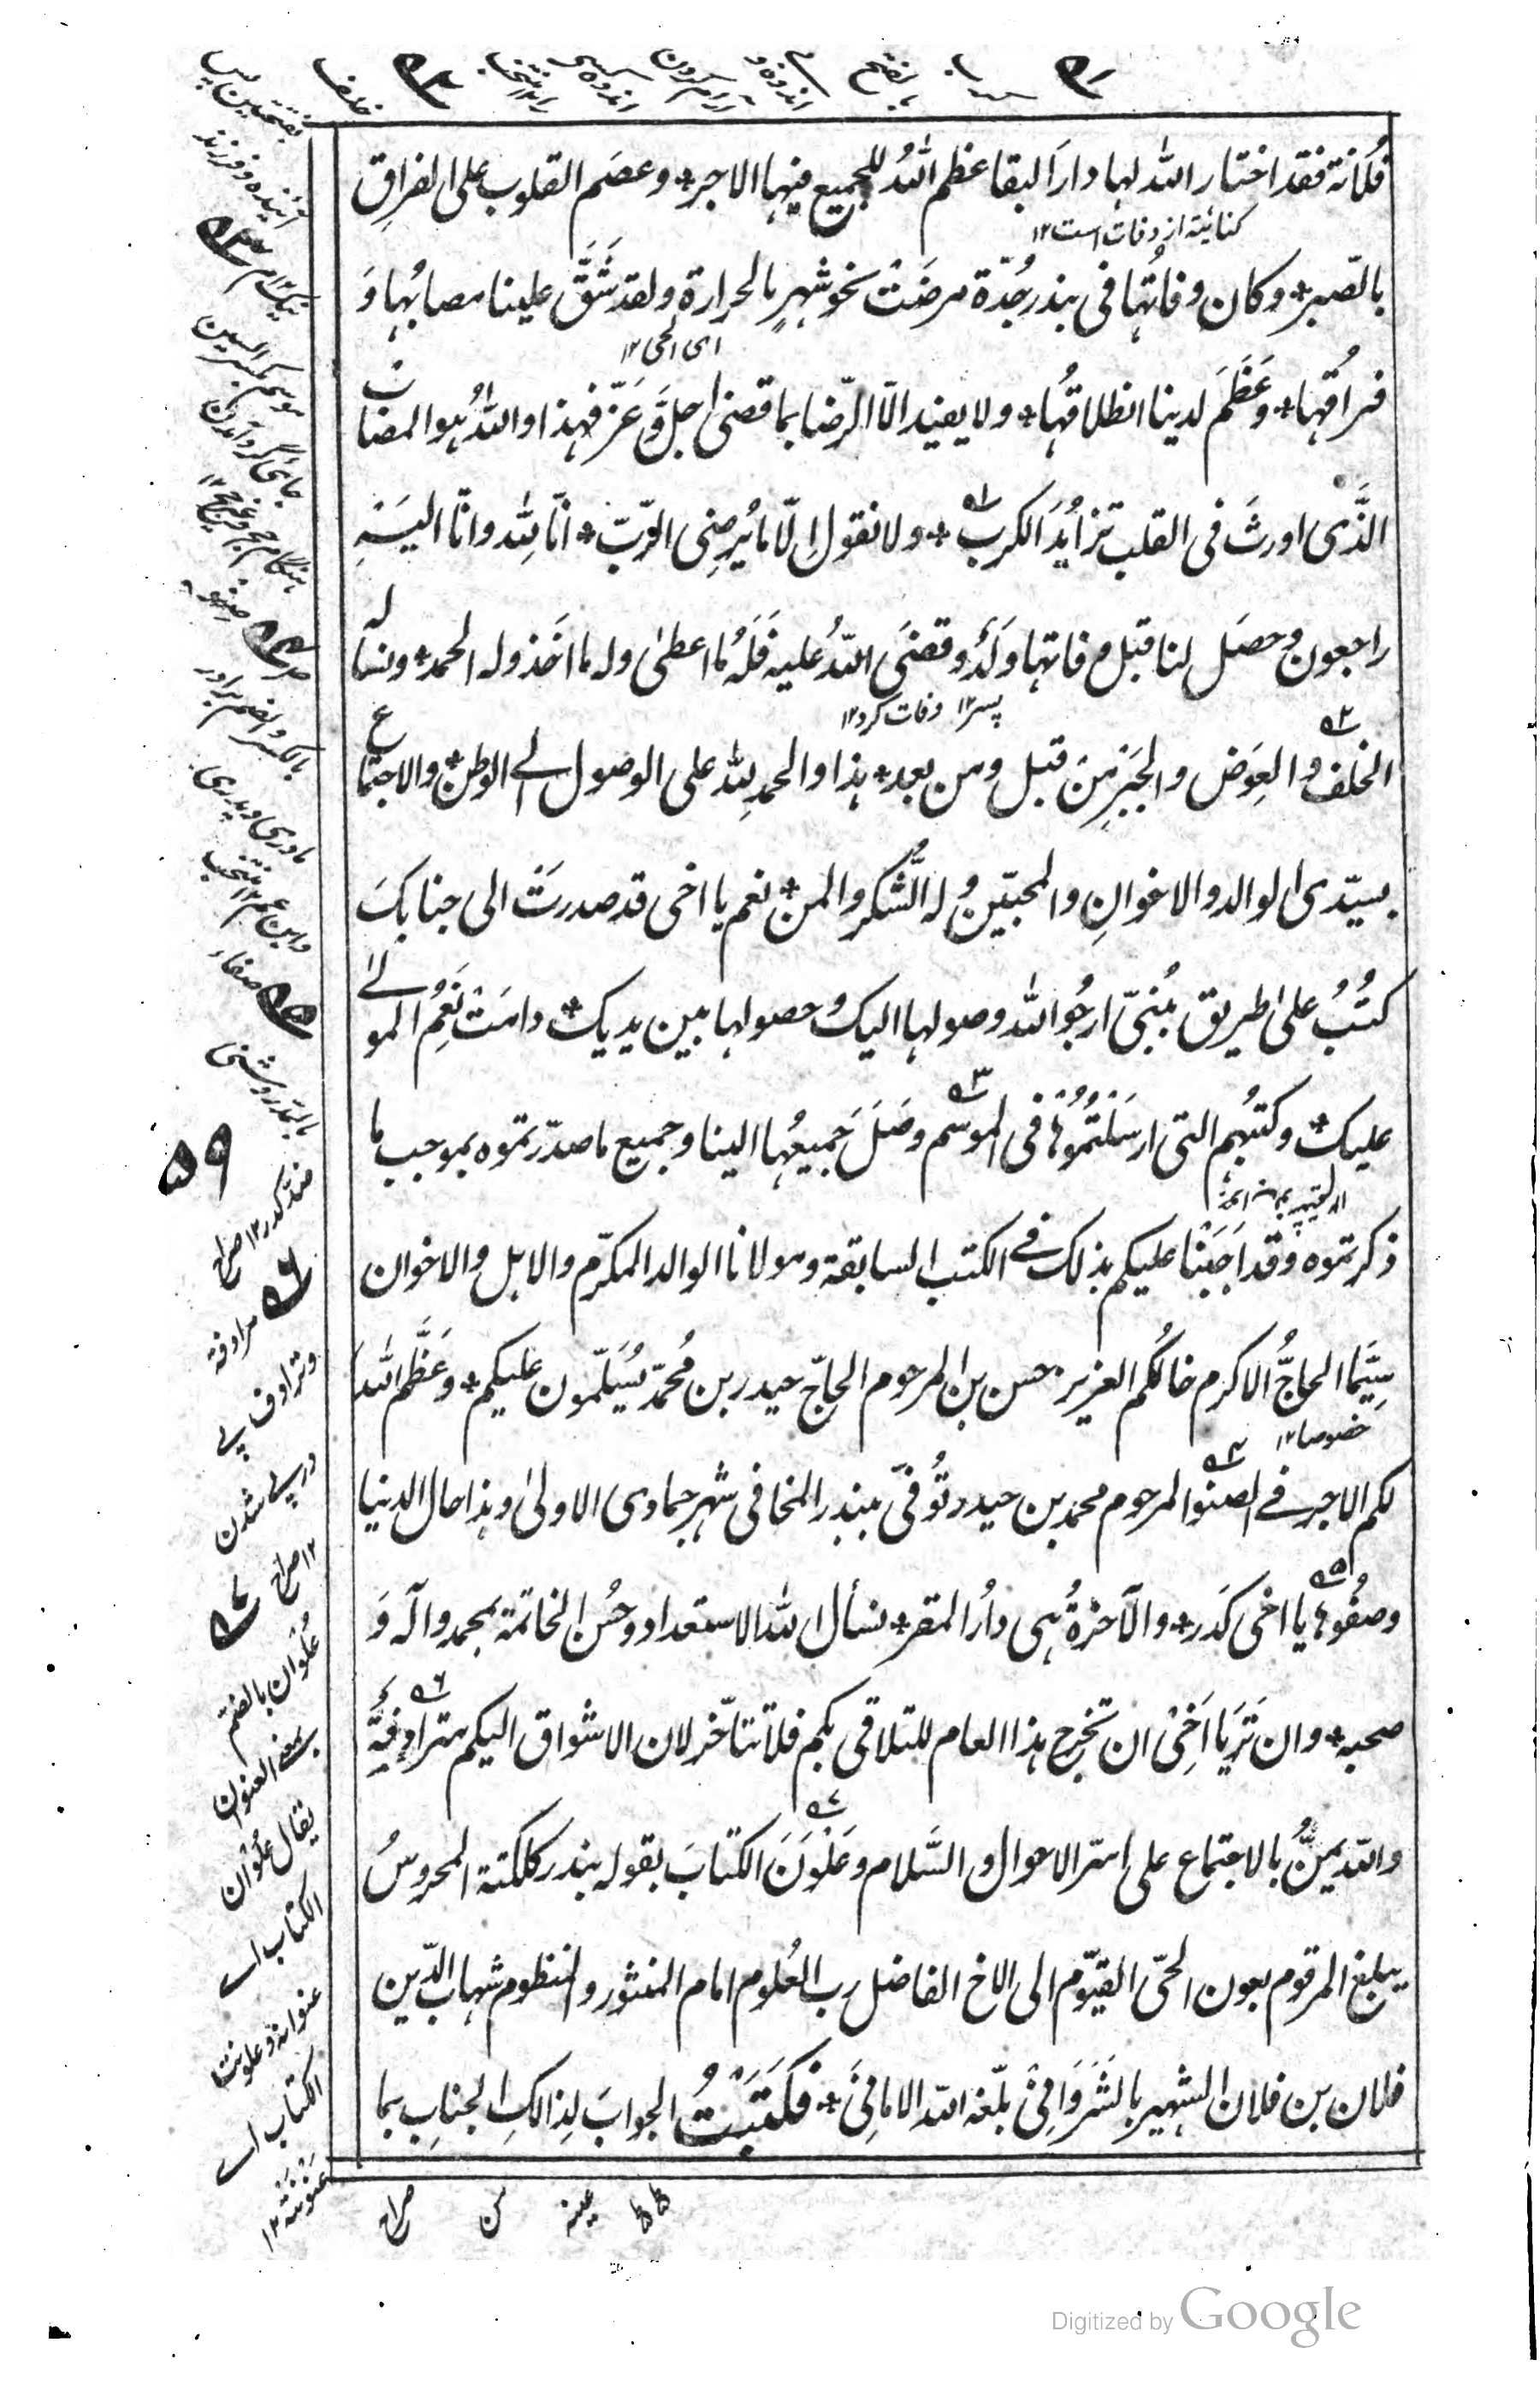 فلانة فقد اختار الله لها دارَ البقا عظم اللهُ للجميع فيها الاجر* وعصَم القلوب على الفراقِ
كنایتة از وفات است ۱۲
بالصّبر* وكان وفاتُها فى بندر جُدّة مرضَتْ نحو شهرٍ بالحرارة ولقد شَقَّ علينا مصابُها وَ
اى الحمى ۱۲
فراقُها* وعَظَمَ لدينا انطلاقُها* ولا يفيد الّا الرّضا بما قضى جلَّ وَعَزّ فهذا واللهُ هو المصاب
الذَّى اورثَ فى القلب تزايُدَ الكرب* ولا نقول اِلّا ما يُرضِى الرّبّ* انّا لِله وانّا اليهِ
راجعون وحصَل لنا قبل وفاتها وَلَدٌ وقضَى اللهُ عليه فَلَهُ ما اعطىٰ وله ما اخَذ وله الحمد* ونسأله
پسر ۱۲ وفات کرد ۱۲
الخلف والعِوَض والجَبَر مِنْ قبل ومن بعد* هذا والحمدِ لِله على الوصول الے الوطن* والاجتماع
بسيّدى الوالد والاخوانِ والمحبّين وله الشّكر والمن* نعم يا اخى قد صدرَتْ الى جنابكَ
كتُبٌ علىٰ طريق بُنبَىّ ارجُو الله وصولها اليك وحصولها بين يديك* دامَتْ نَعِمُ المولے
عليك* وكتبُهم التى ارسَلتُمُوْهَا فى الموسم وصَلَ جَميعُها الينا وجميع ما صدّرتموه بموجب ما
ذكرتموه وقد اَجَبْنا عليكم بذلك فے الكتب السابقة ومولانا الوالد المكرّم والاهل والاخوان
سِيَّما الحاجُّ الاكرم خالُكم العزيز حسن بن المرحوم الحاجّ حيدر بن مُحمّد يُسَلّمون عليكم* وعَظَّم الله
خصوصا ۱۲
لكم الاجر فے الصنو المرحوم محمد بن حيدر تُوفّى ببندر المخا فى شهر جمادى الاولىٰ وهذا حال الدنيا
وصفُوها يا اخى كدَر* والآخرةُ هى دارُ المقر* نسأل الله الاستعداد وحُسن الخاتمة بمحمد وآله وَ
صحبه* وان تَرَ يا اَخِىْ ان تخرج هذا العام للتلاقى بكم فلا تتأخّر لان الاشواق اليكم مترادِفةٌ
والله يمنُّ بالاجتماع على اسّر الاحوال والسَّلام وعَلْوَنَ الكتابَ بقوله بندر كلكتة المحروسُ
يبلغ المرقوم بعون الحىّ القيّوم الى الاخ الفاضل رب العُلوم امام المنثور والمنظوم شهاب الدّين
فلان بن فلان الشهير بالشَرْوَانِىْ بلّغه الله الامانِىَ* فكَتَبْتُ الجوابَ لِذالكِ الجنابِ بما
۵۱
بالفتح
۵۲
خلف
بفتحتين پس
آینده و فرزند
۵۳
بالكسر والضم برادر
مادری و پدری
وابن عم ۱۲ منتخب
۵۵ صفاء
۵۹
۵۶ مرادفة
وترادف پے
در پے شدن
۱۲ صراح
۵۷
عُلوَان بالضم
يقال عُلوَان
الكتاب اے
عنوانه وعلونت
الكتاب اے
عَنْوَنْتُه ۱۲
صراح
Digitized by Google